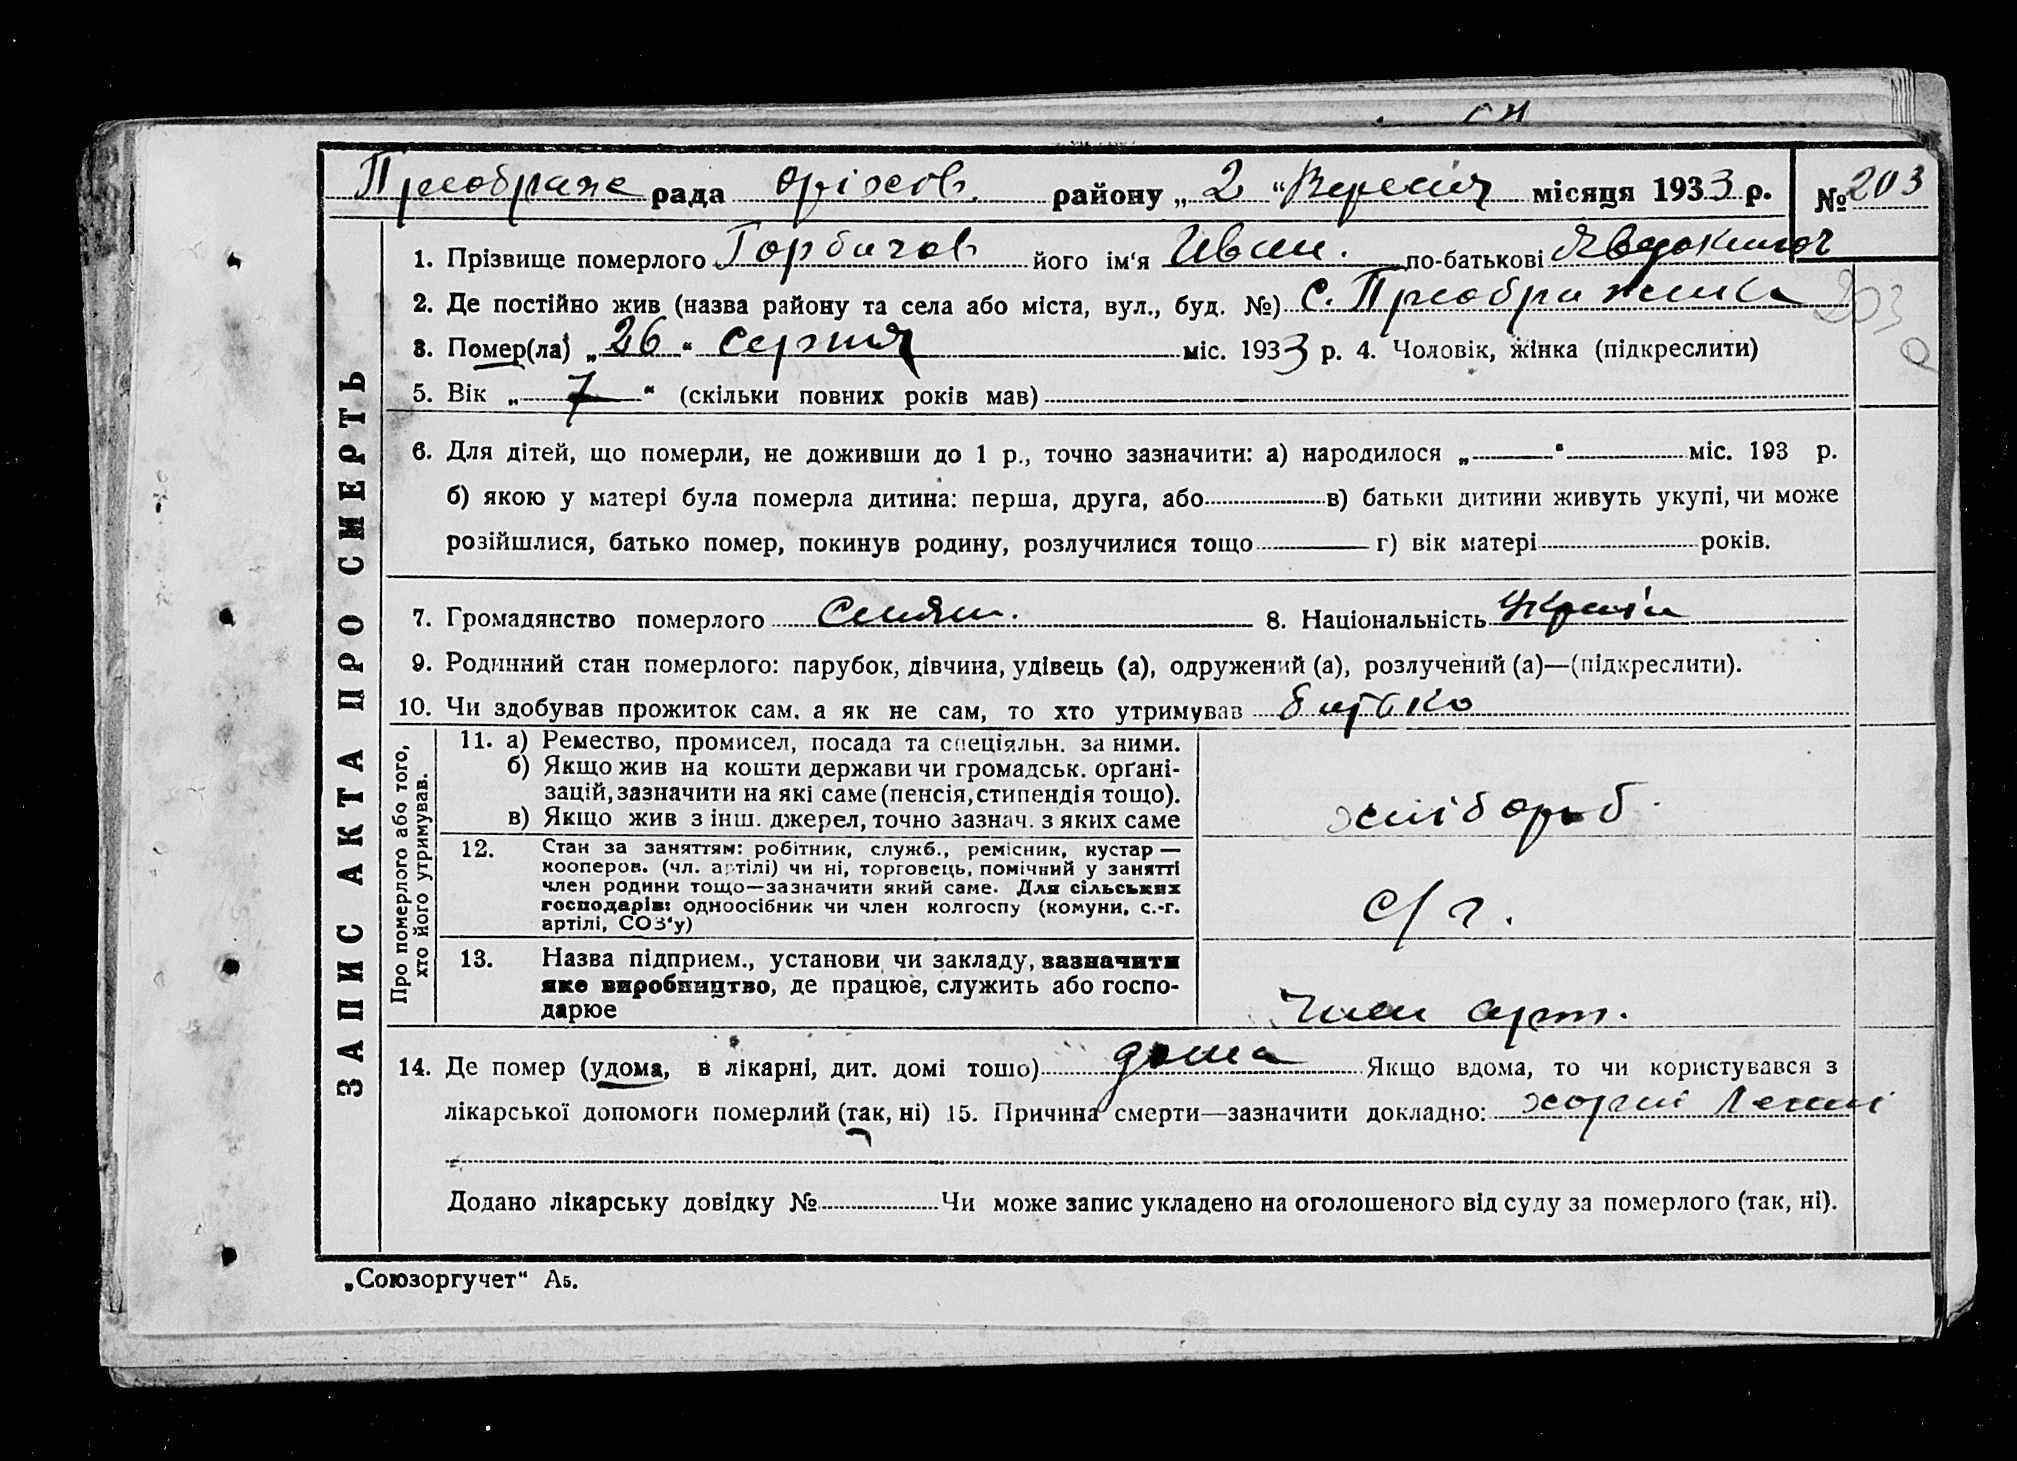 Преображе рада Оріхов. району „ 2 “ Вересня місяця 1933 р. № 203
1. Прізвище померлого Горбачов його ім‘я Иван. по-батькові
203
2. Де постійно жив (назва району та села або міста, вул., буд. №) С. Преображенка
3. Помер(ла) „ 26 “ серпня міс. 1933 р. 4. Чоловік, жінка (підкреслити)
5. Вік „ 7 “ (скільки повних років мав)
6. Для дітей, що померли, не доживши до 1 р., точно зазначити: а) народилося „ “ міс. 193 р.
б) якою у матері була померла дитина: перша, друга, або в) батьки дитини живуть укупі, чи може
розійшлися, батько помер, покинув родину, розлучилися тощо г) вік матері років.
7. Громадянство померлого Селян. 8. Національність
9. Родинний стан померлого: парубок, дівчина, удівець (а), одружений (а), розлучений (а)—(підкреслити).
10. Чи здобував прожиток сам. а як не сам, то хто утримував батько
ЗАПИС АКТА ПРО СМЕРТЬ
Про померлого або того,
хто його утримував.
11. а) Ремество, промисел, посада та спеціяльн. за ними.
б) Якщо жив на кошти держави чи громадськ. орґані-
зацій, зазначити на які саме (пенсія, стипендія тощо).
в) Якщо жив з інш. джерел, точно зазнач. з яких саме
хлібороб.
12. Стан за заняттям: робітник, служб., ремісник, кустар —
кооперов. (чл. артілі) чи ні, торговець, помічний у занятті
член родини тощо—зазначити який саме. Для сільських
господарів: одноосібник чи член колгоспу (комуни, с.-г.
артілі, СОЗ‘у)
с/г.
13. Назва підприєм., установи чи закладу, зазначити
яке виробництво, де працює, служить або госпо-
дарює
член арт.
14. Де помер (удома, в лікарні, дит. домі тошо) дома Якщо вдома, то чи користувався з
лікарської допомоги померлий (так, ні) 15. Причина смерти—зазначити докладно:
Додано лікарську довідку № Чи може запис укладено на оголошеного від суду за померлого (так, ні).
„Союзоргучет“ А5.